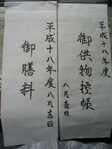 平成十八年度
御供物控帳
八月吉日
平成十八年度八月吉日
御膳料